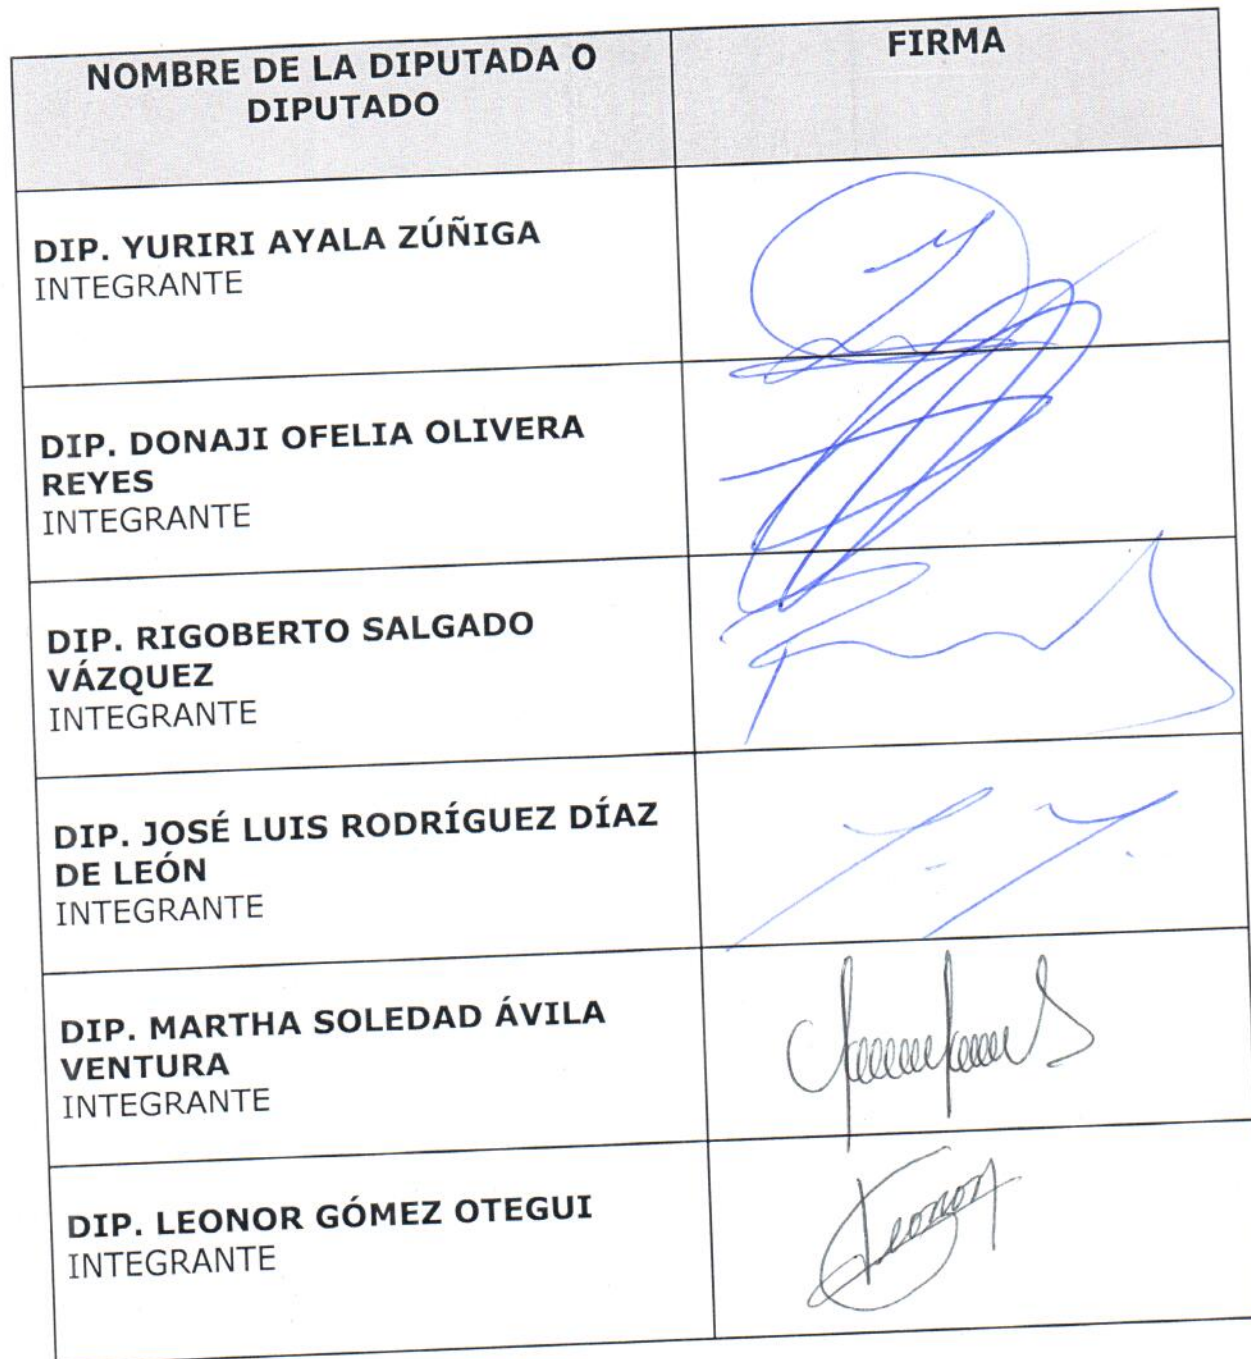 NOMBRE DE LA DIPUTADA O
DIPUTADO
FIRMA
DIP. YURIRI AYALA ZÚÑIGA
INTEGRANTE
DIP. DONAJI OFELIA OLIVERA
REYES
INTEGRANTE
DIP. RIGOBERTO SALGADO
VÁZQUEZ
INTEGRANTE
DIP. JOSÉ LUIS RODRÍGUEZ DÍAZ
DE LEÓN
INTEGRANTE
DIP. MARTHA SOLEDAD ÁVILA
VENTURA
INTEGRANTE
DIP. LEONOR GÓMEZ OTEGUI
INTEGRANTE
Leonor